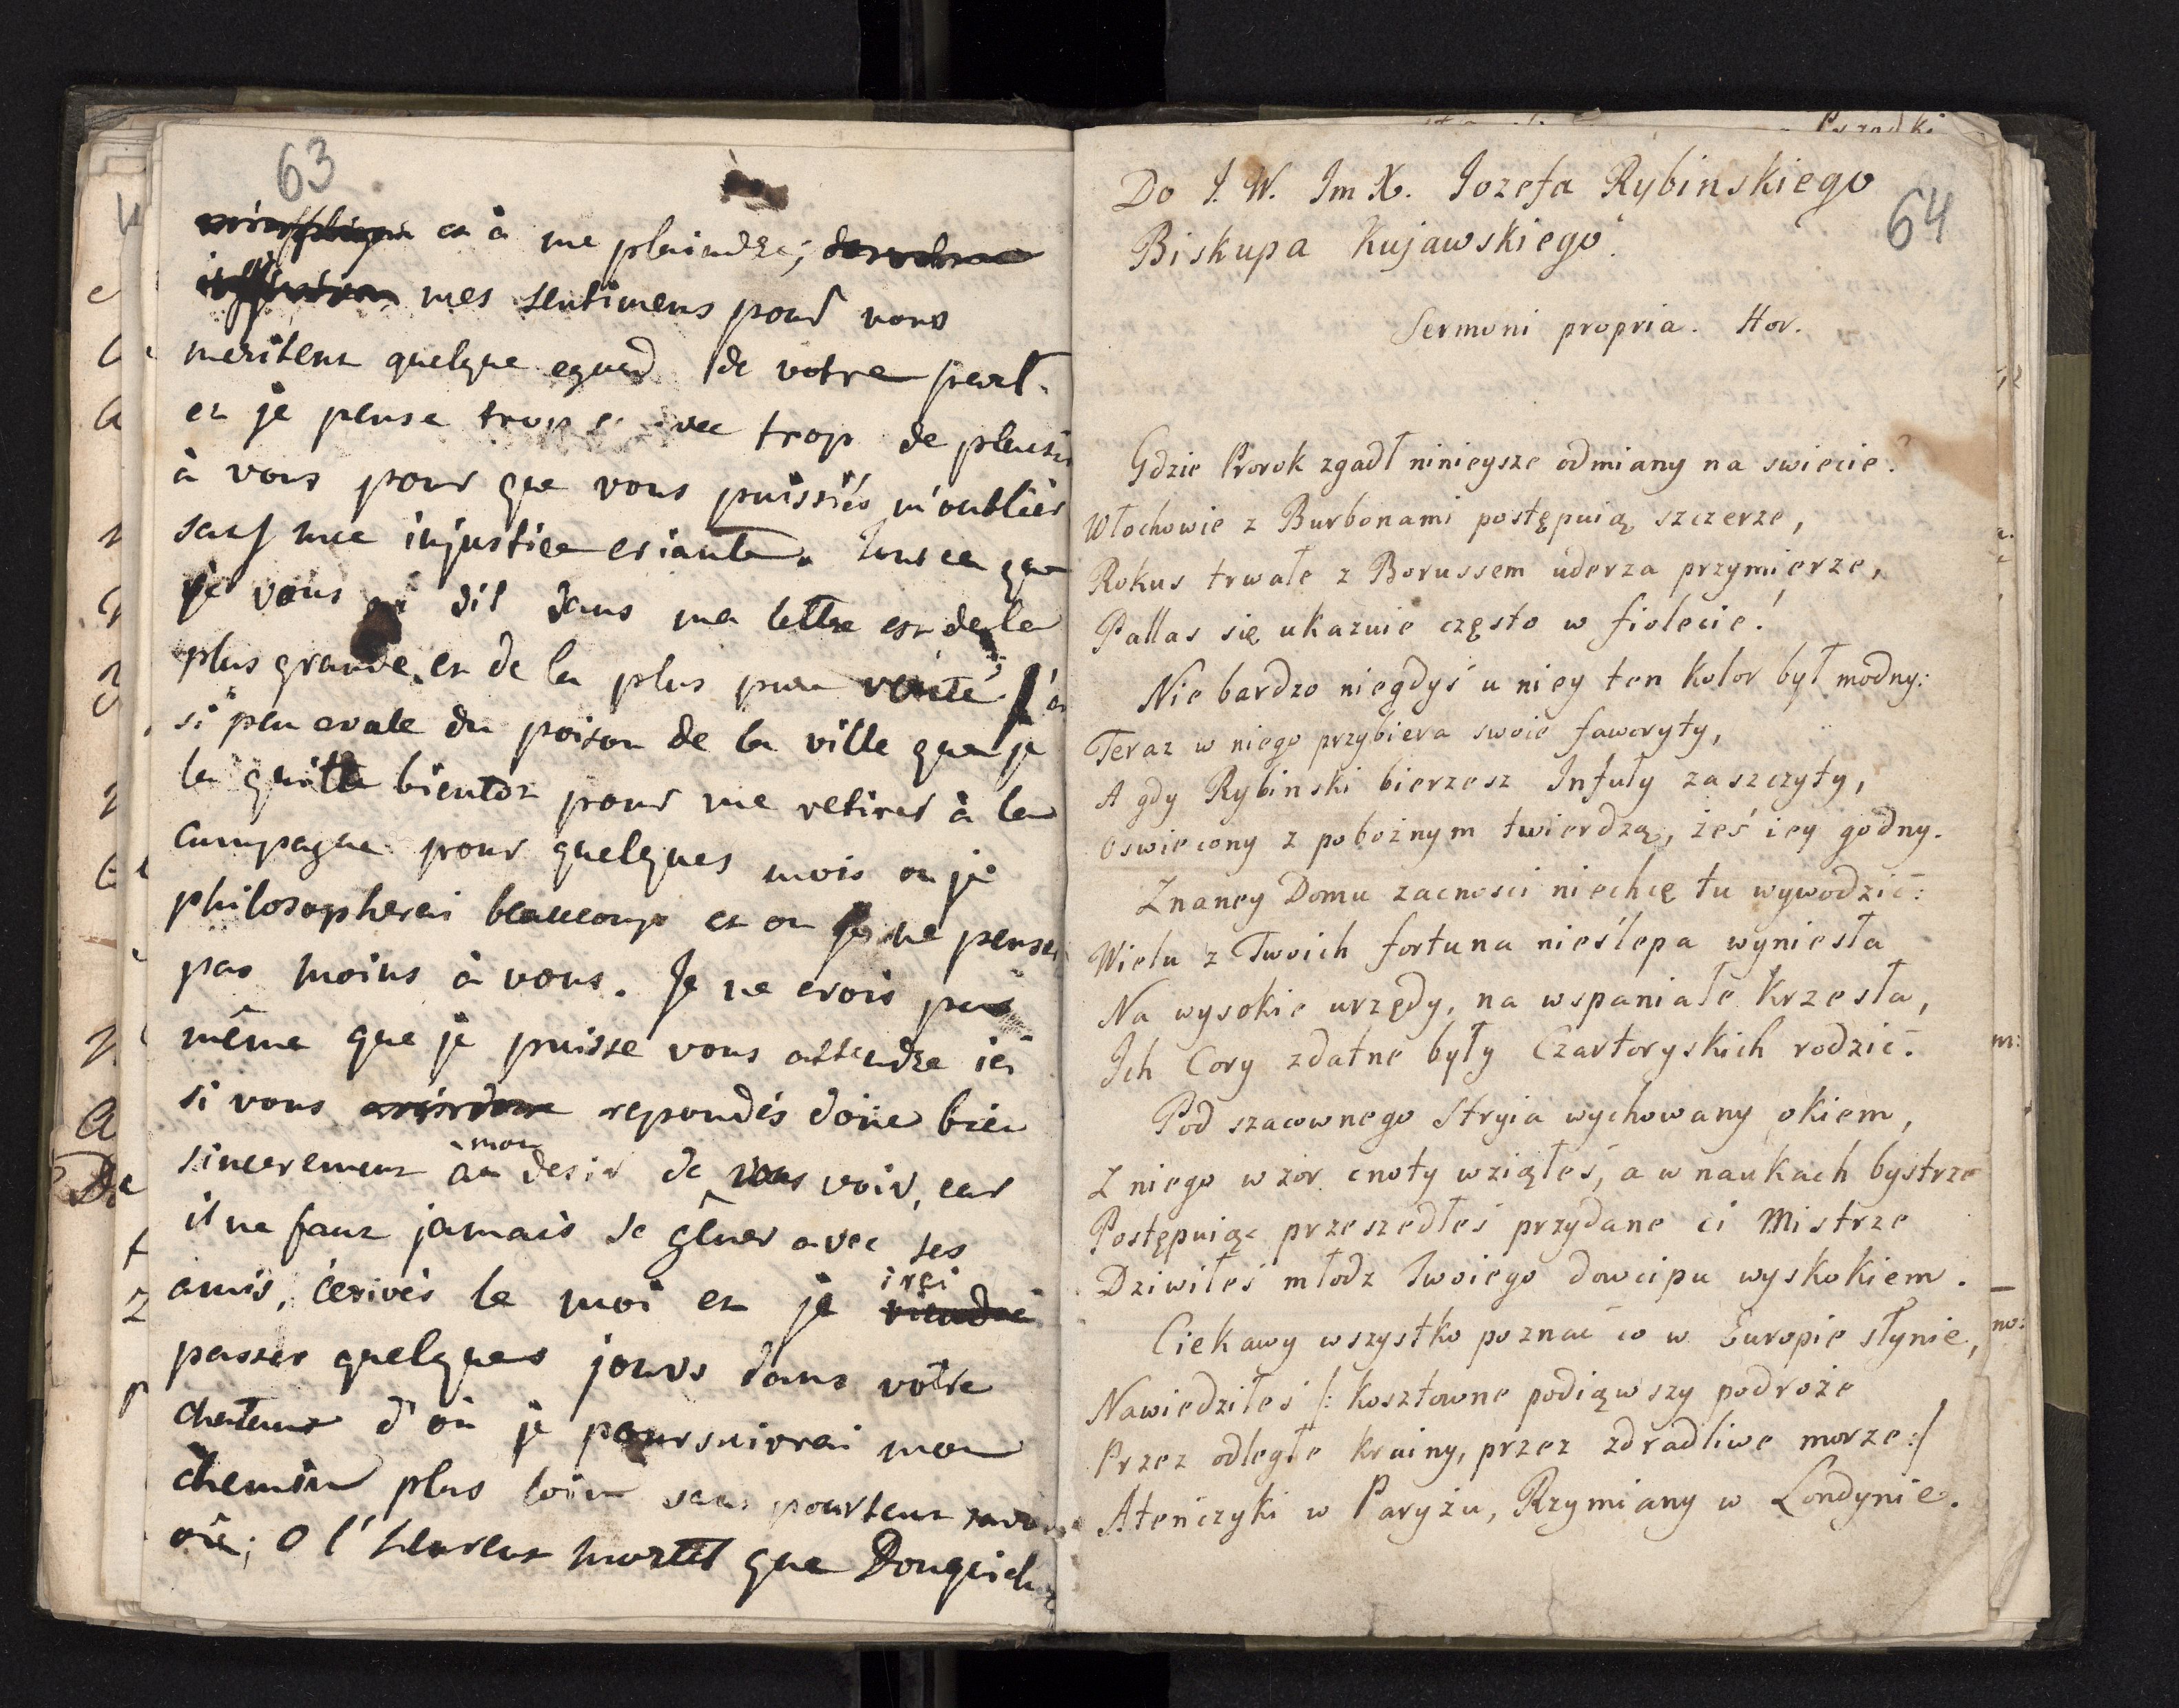 63
et à me plaindre;
mes sentimens pour vous
meritent quelque egard de votre part.
et je pense trop avec trop de plaisir
à vous pour que vous puissiés m'oublier
sauf une injustice criante. Tout ce que
je vous ai dit dans ma lettre est de la
plus grande et de la plus pure verité j'ai
si peu avalé du poison de la ville que je
la quitte bientot pour me retirer à la
campagne pour quelques mois ou je
philosopherai beaucoup et ou je ne pense
pas moins à vous. Je ne crois pas
même que je puisse vous attendre ici
si vous repondés donc bien
sincerement à mon desir de vous voir, car
il ne faut jamais se gêner avec ses
amis, écrivés le moi et je irai viendrai
passer quelques jours dans votre
chateau d'où je poursuivrai mon
chemin plus loin sans pourtant savoir
où; O l'heureux mortel que Donquich
64
Do J. W. Im X. Jozefa Rybinskiego
Biskupa Kujawskiego.
Sermoni propria. Hor.
Gdzie Prorok zgadł ninieysze odmiany na swiecie?
Włochowie z Burbonami postępuią szczerze,
Rokus trwałe z Borussem uderza przymierze,
Pallas się ukazuie często w fiolecie!
Nie bardzo niegdyś u niey ten kolor był modny:
Teraz w niego przybiera swoie faworyty,
A gdy Rybinski bierzesz Infuły zaszczyty,
Oswiecony z pobożnym twierdzą, żeś iey godny.
Znaney Domu zacnosci niechcę tu wywodzić:
Wielu z Twoich fortuna nieślepa wyniesła
Na wysokie urzędy, na wspaniałe Krzesła,
Ich Cory zdatne były Czartoryskich rodzić.
Pod szacownego Stryia wychowany okiem,
Z niego wzor cnoty wziąłeś, a w naukach bystrze
Postępuiąc przeszedłeś przydane ci Mistrze
Dziwiłeś młodz Twoiego dowcipu wyskokiem.
Ciekawy wszystko poznać co w Europie słynie,
Nawiedziłeś /: kosztowne podiąwszy podroże
Przez odległe krainy, przez zdradliwe morze :/
Atenczyki w Paryżu, Rzymiany w Londynie.